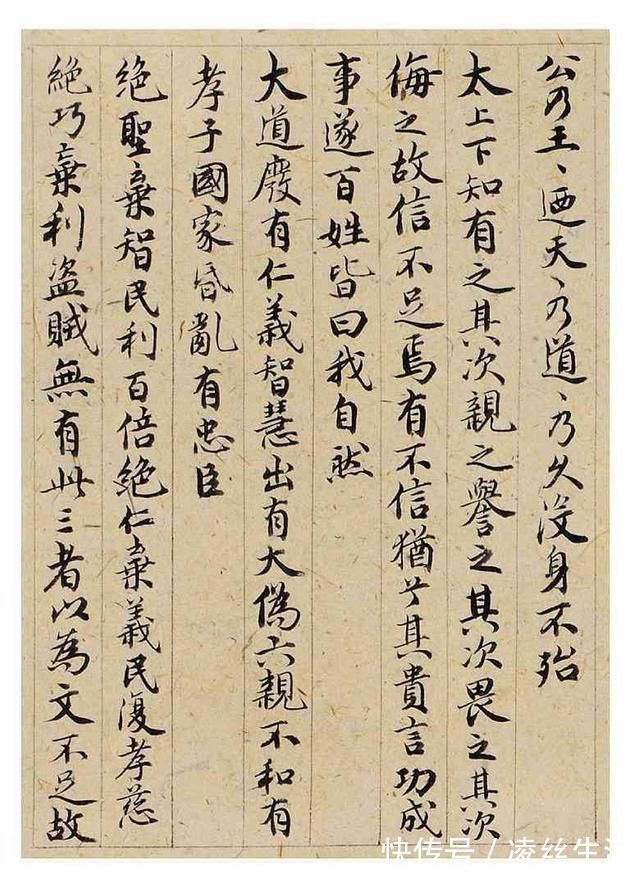 公乃王〻迺天〻乃道〻乃久没身不殆
太上下知有之其次親之譽之其次畏之其次
侮之故信不足焉有不信猶兮其貴言功成
事遂百姓皆曰我自然
大道廢有仁義智慧出有大偽六親不和有
孝子國家昏亂有忠臣
絕聖棄智民利百倍絕仁棄義民復孝慈
絕巧棄利盜賊無有此三者以為文不足故
快传号/凌丝生